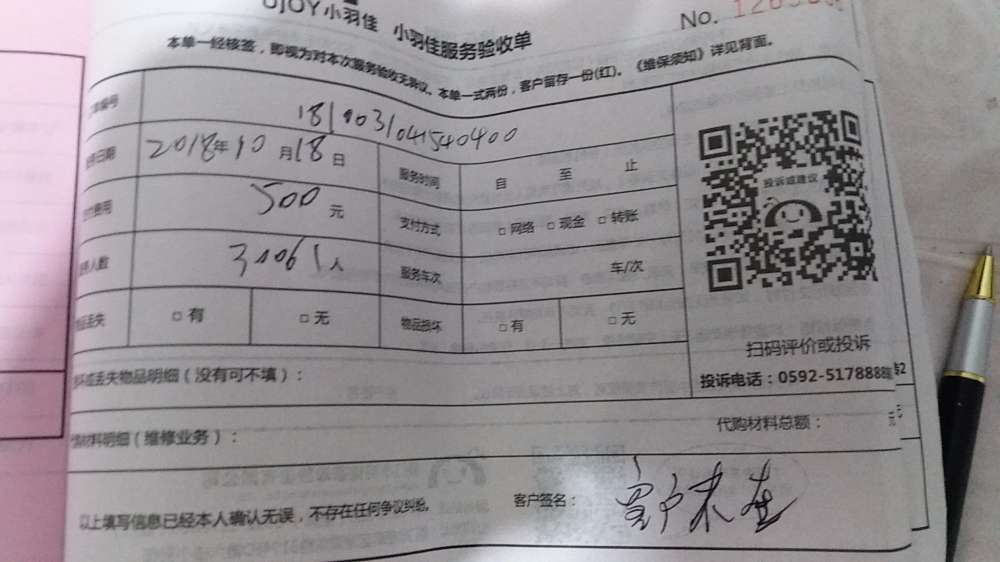 小羽佳 小羽佳服务验收单
No.
本单一经核签，即视为对本次服务验收无异议。本单一式两份，客户留存一份(红)。《维保须知》详见背面。
编号
181003104540400
日期 2018年10月18日 服务时间 自 至 止
费用 500元 支付方式 □网络 □现金 □转账
人数 人 服务车次 车/次
丢失 □有 □无 物品损坏 □有 □无
投诉或建议
扫码评价或投诉
投诉电话：0592-5178888
丢失物品明细（没有可不填）：
材料明细（维修业务）：
代购材料总额：
元
以上填写信息已经本人确认无误，不存在任何争议纠纷。
客户签名：
客户未在